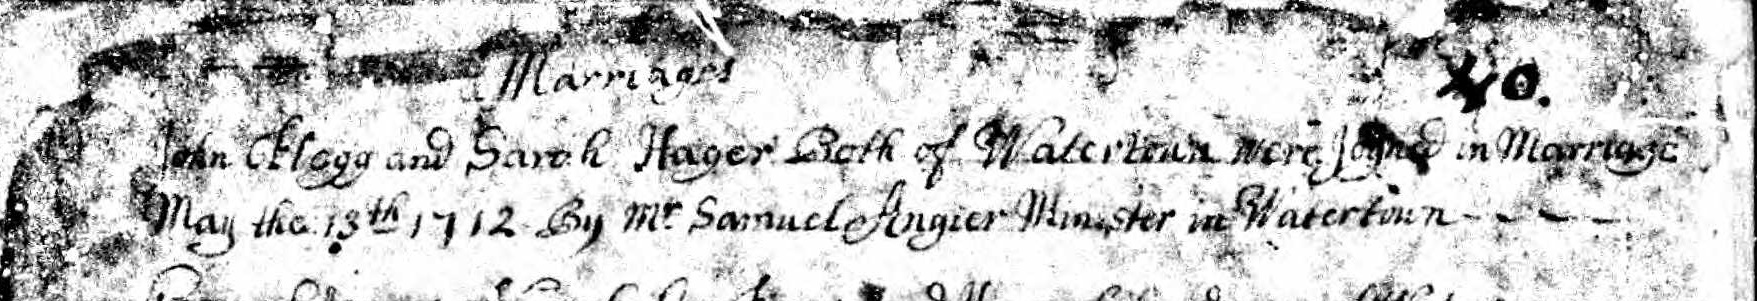 Marriages 40.
John Clegg and Sarah Hager Both of Watertown were Joyned in Marriage
May the 13th 1712 By Mr Samuel Angier Minister in Watertown - - - -